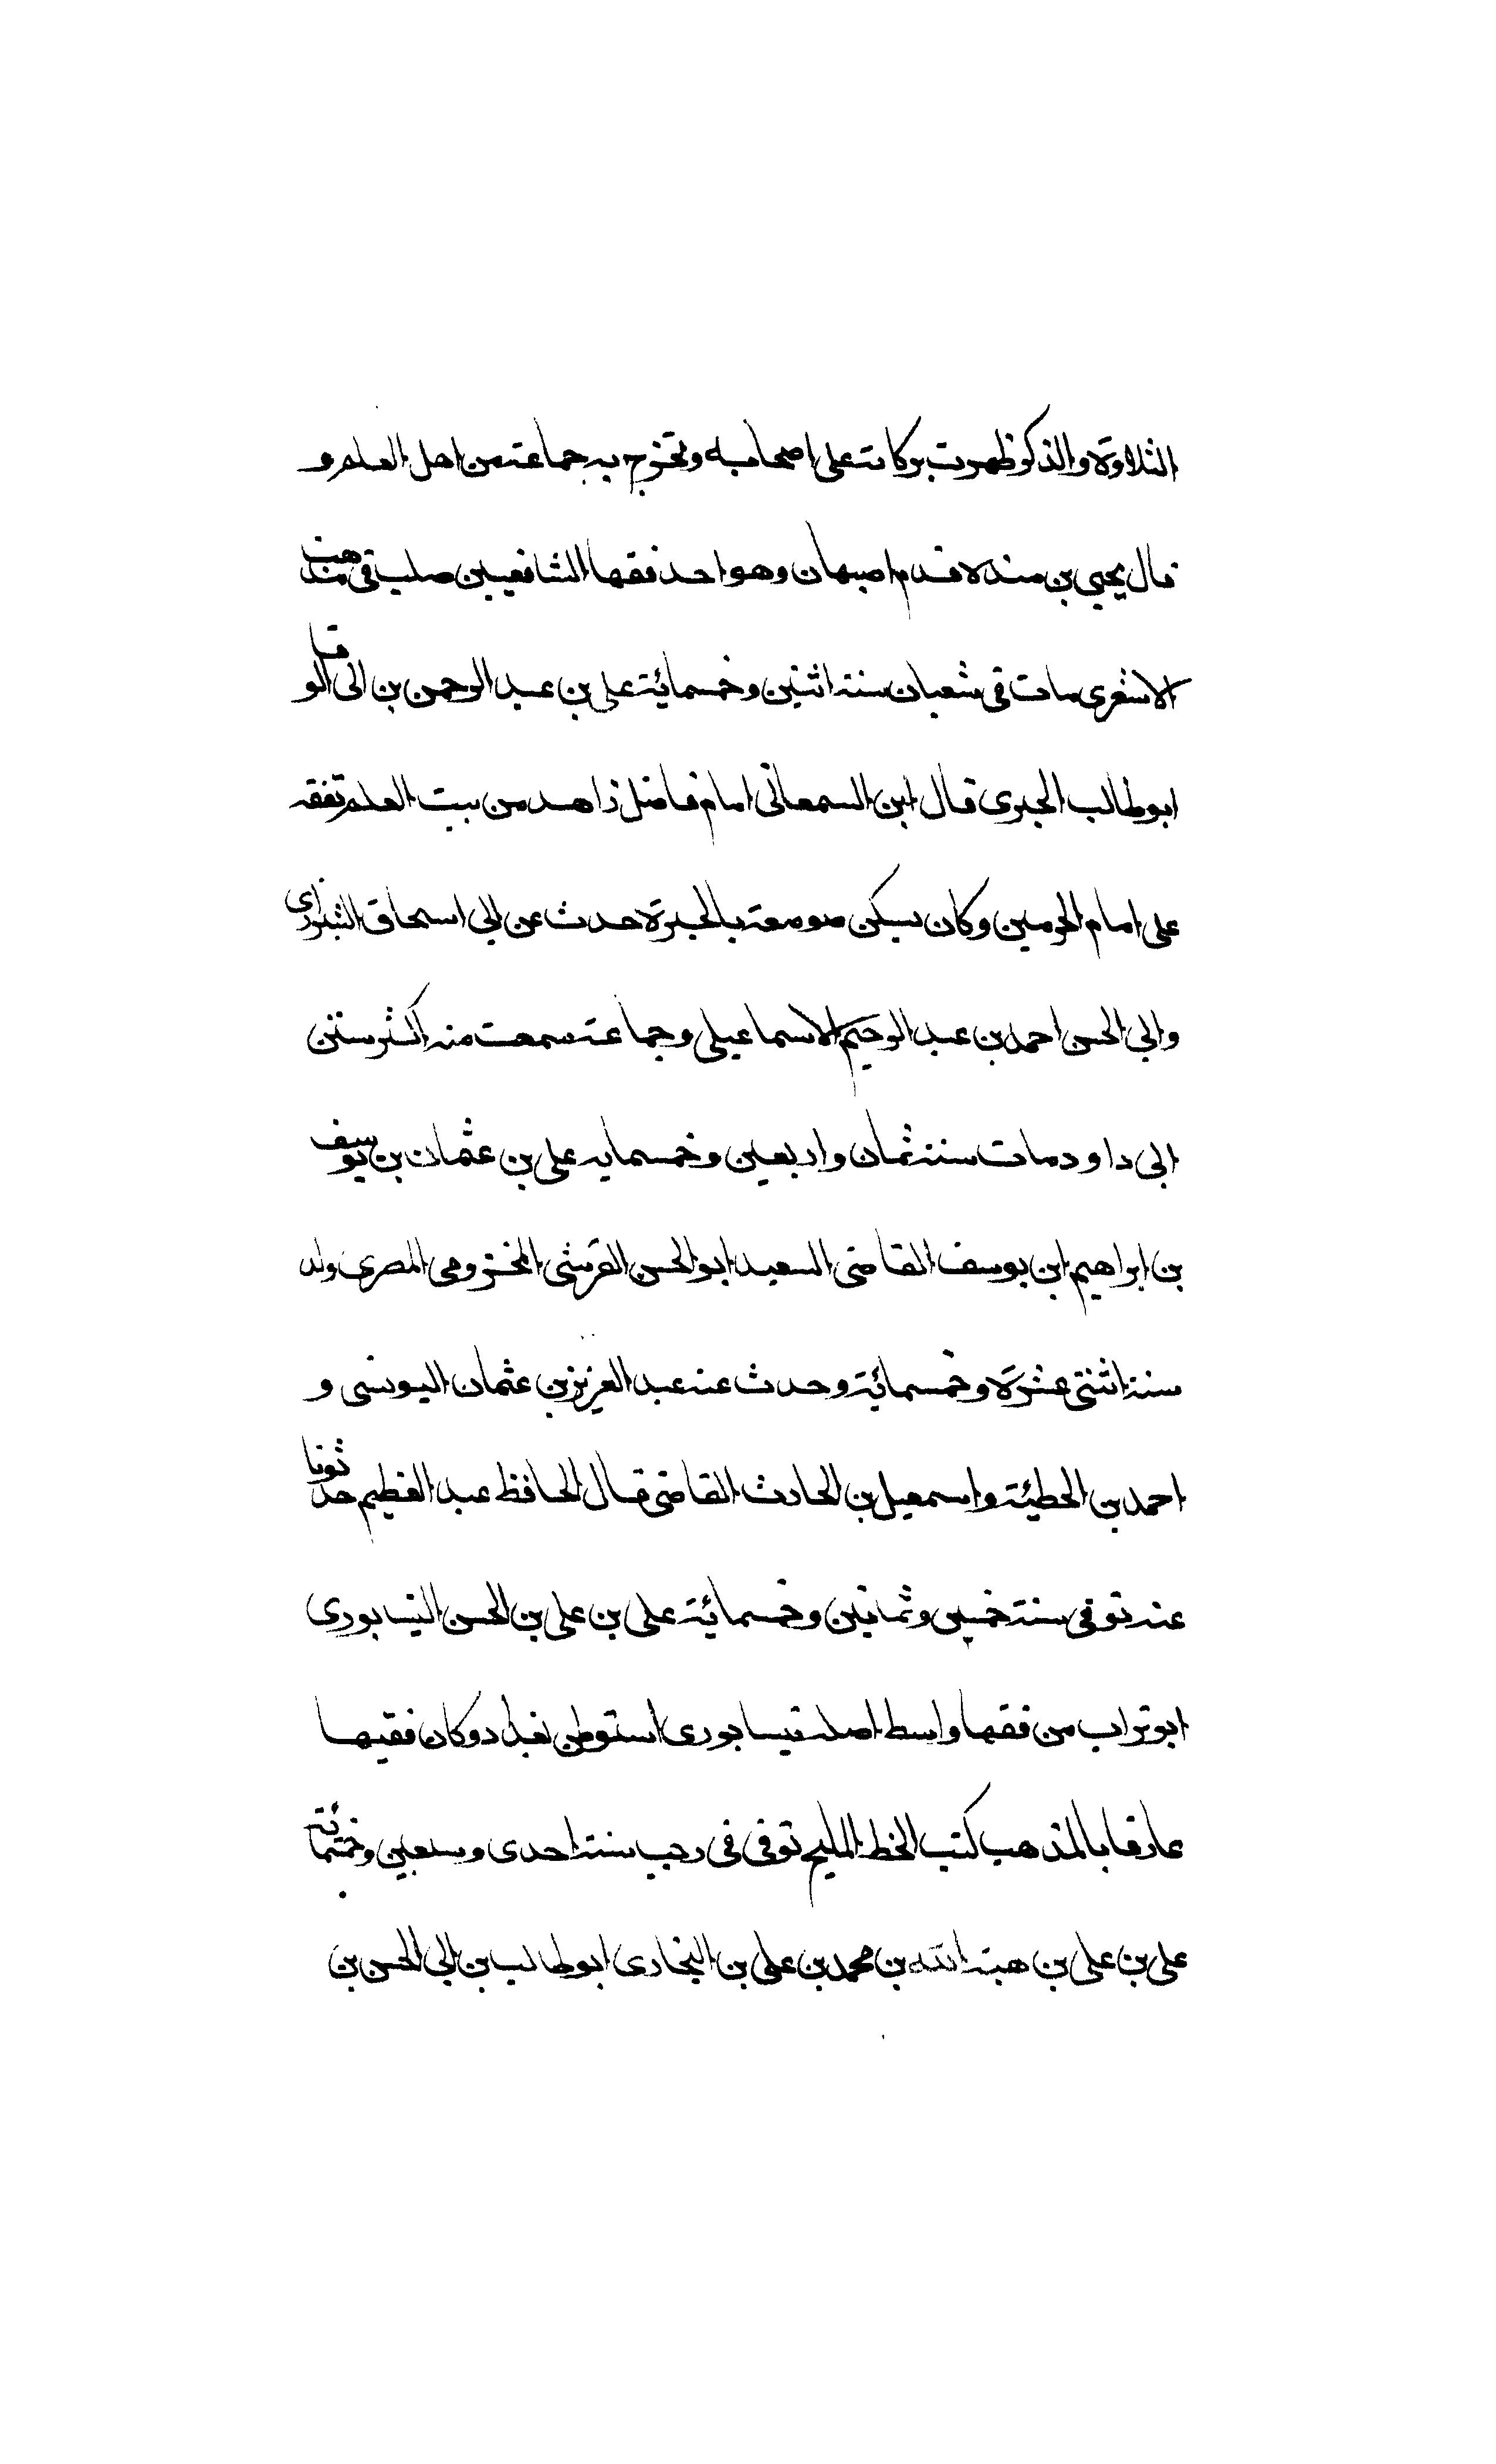 التلاوة والذكر ظهرت بركاته على اصحابه وتخرج به جماعة من اهل العلم و
قال يحيى بن منده قدم اصبهان وهو احد فقها الشافعيين صليب فى مذهب
الاشعرى مات فى شعبان سنة اثنتين وخمسمائة على بن عبد الرحمن بن ابى الوفا
ابو طالب الحيرى قال ابن السمعانى امام فاضل زاهد من بيت العلم تفقه
على امام الحرمين وكان يسكن صومعة بالحيرة حدث عن ابى اسحاق الشيرازى
وابى الحسن احمد بن عبد الرحيم الاسماعيلى وجماعة سمعت منه اكثر سنن
ابى داود مات سنة ثمان واربعين وخمسمايه على بن عثمان بن يوسف
بن ابراهيم ابن يوسف القاضى السعيد ابو الحسن القرشى المخزومى المصرى ولد
سنة اثنتى عشرة وخمسمائة وحدث عنه عبد العزيز بن عثمان اليونسى و
احمد بن الحطيئة واسمعيل بن الحارث القاضى قال الحافظ عبد العظيم حدثونا
عنه توفى سنة خمس وثمانين وخمسمائة على بن على بن الحسن النيسابورى
ابو تراب من فقها واسط اصله نيسابورى استوطن بغداد وكان فقيها
عارفا بالمذهب كتب الخط المليح توفى فى رجب سنة احدى وسبعين وخمسمائة
على بن على بن هبة الله بن محمد بن على بن البخارى ابو طالب بن ابى الحسن بن